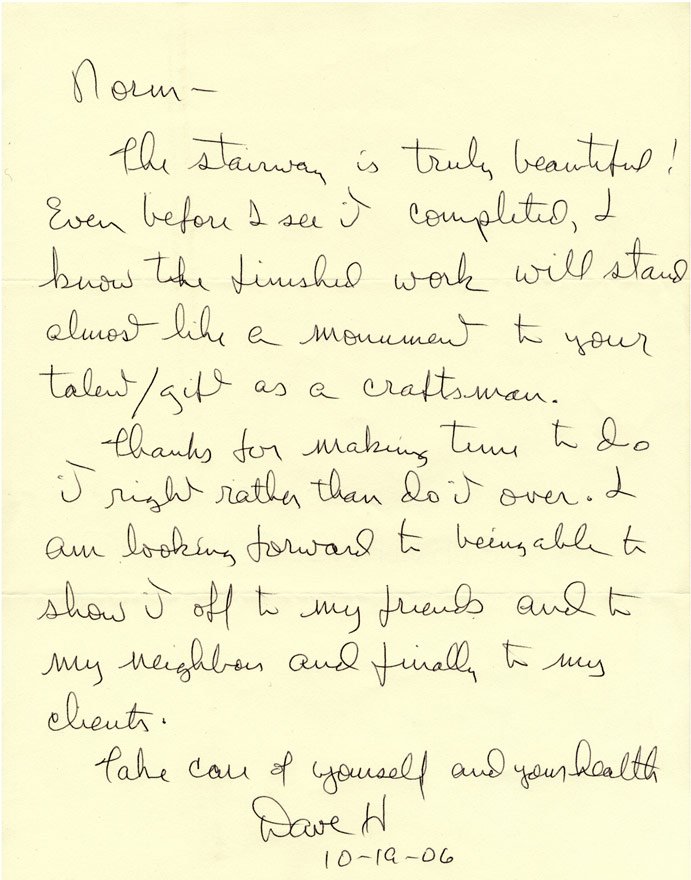 Norm -
The stairway is truly beautiful!
Even before I see it completed, I
know the finished work will stand
almost like a monument to your
talent/gift as a craftsman.
Thanks for making time to do
it right rather than do it over. I
am looking forward to being able to
show it off to my friends and to
my neighbors and finally to my
clients.
Take care of yourself and your health
Dave H
10-19-06